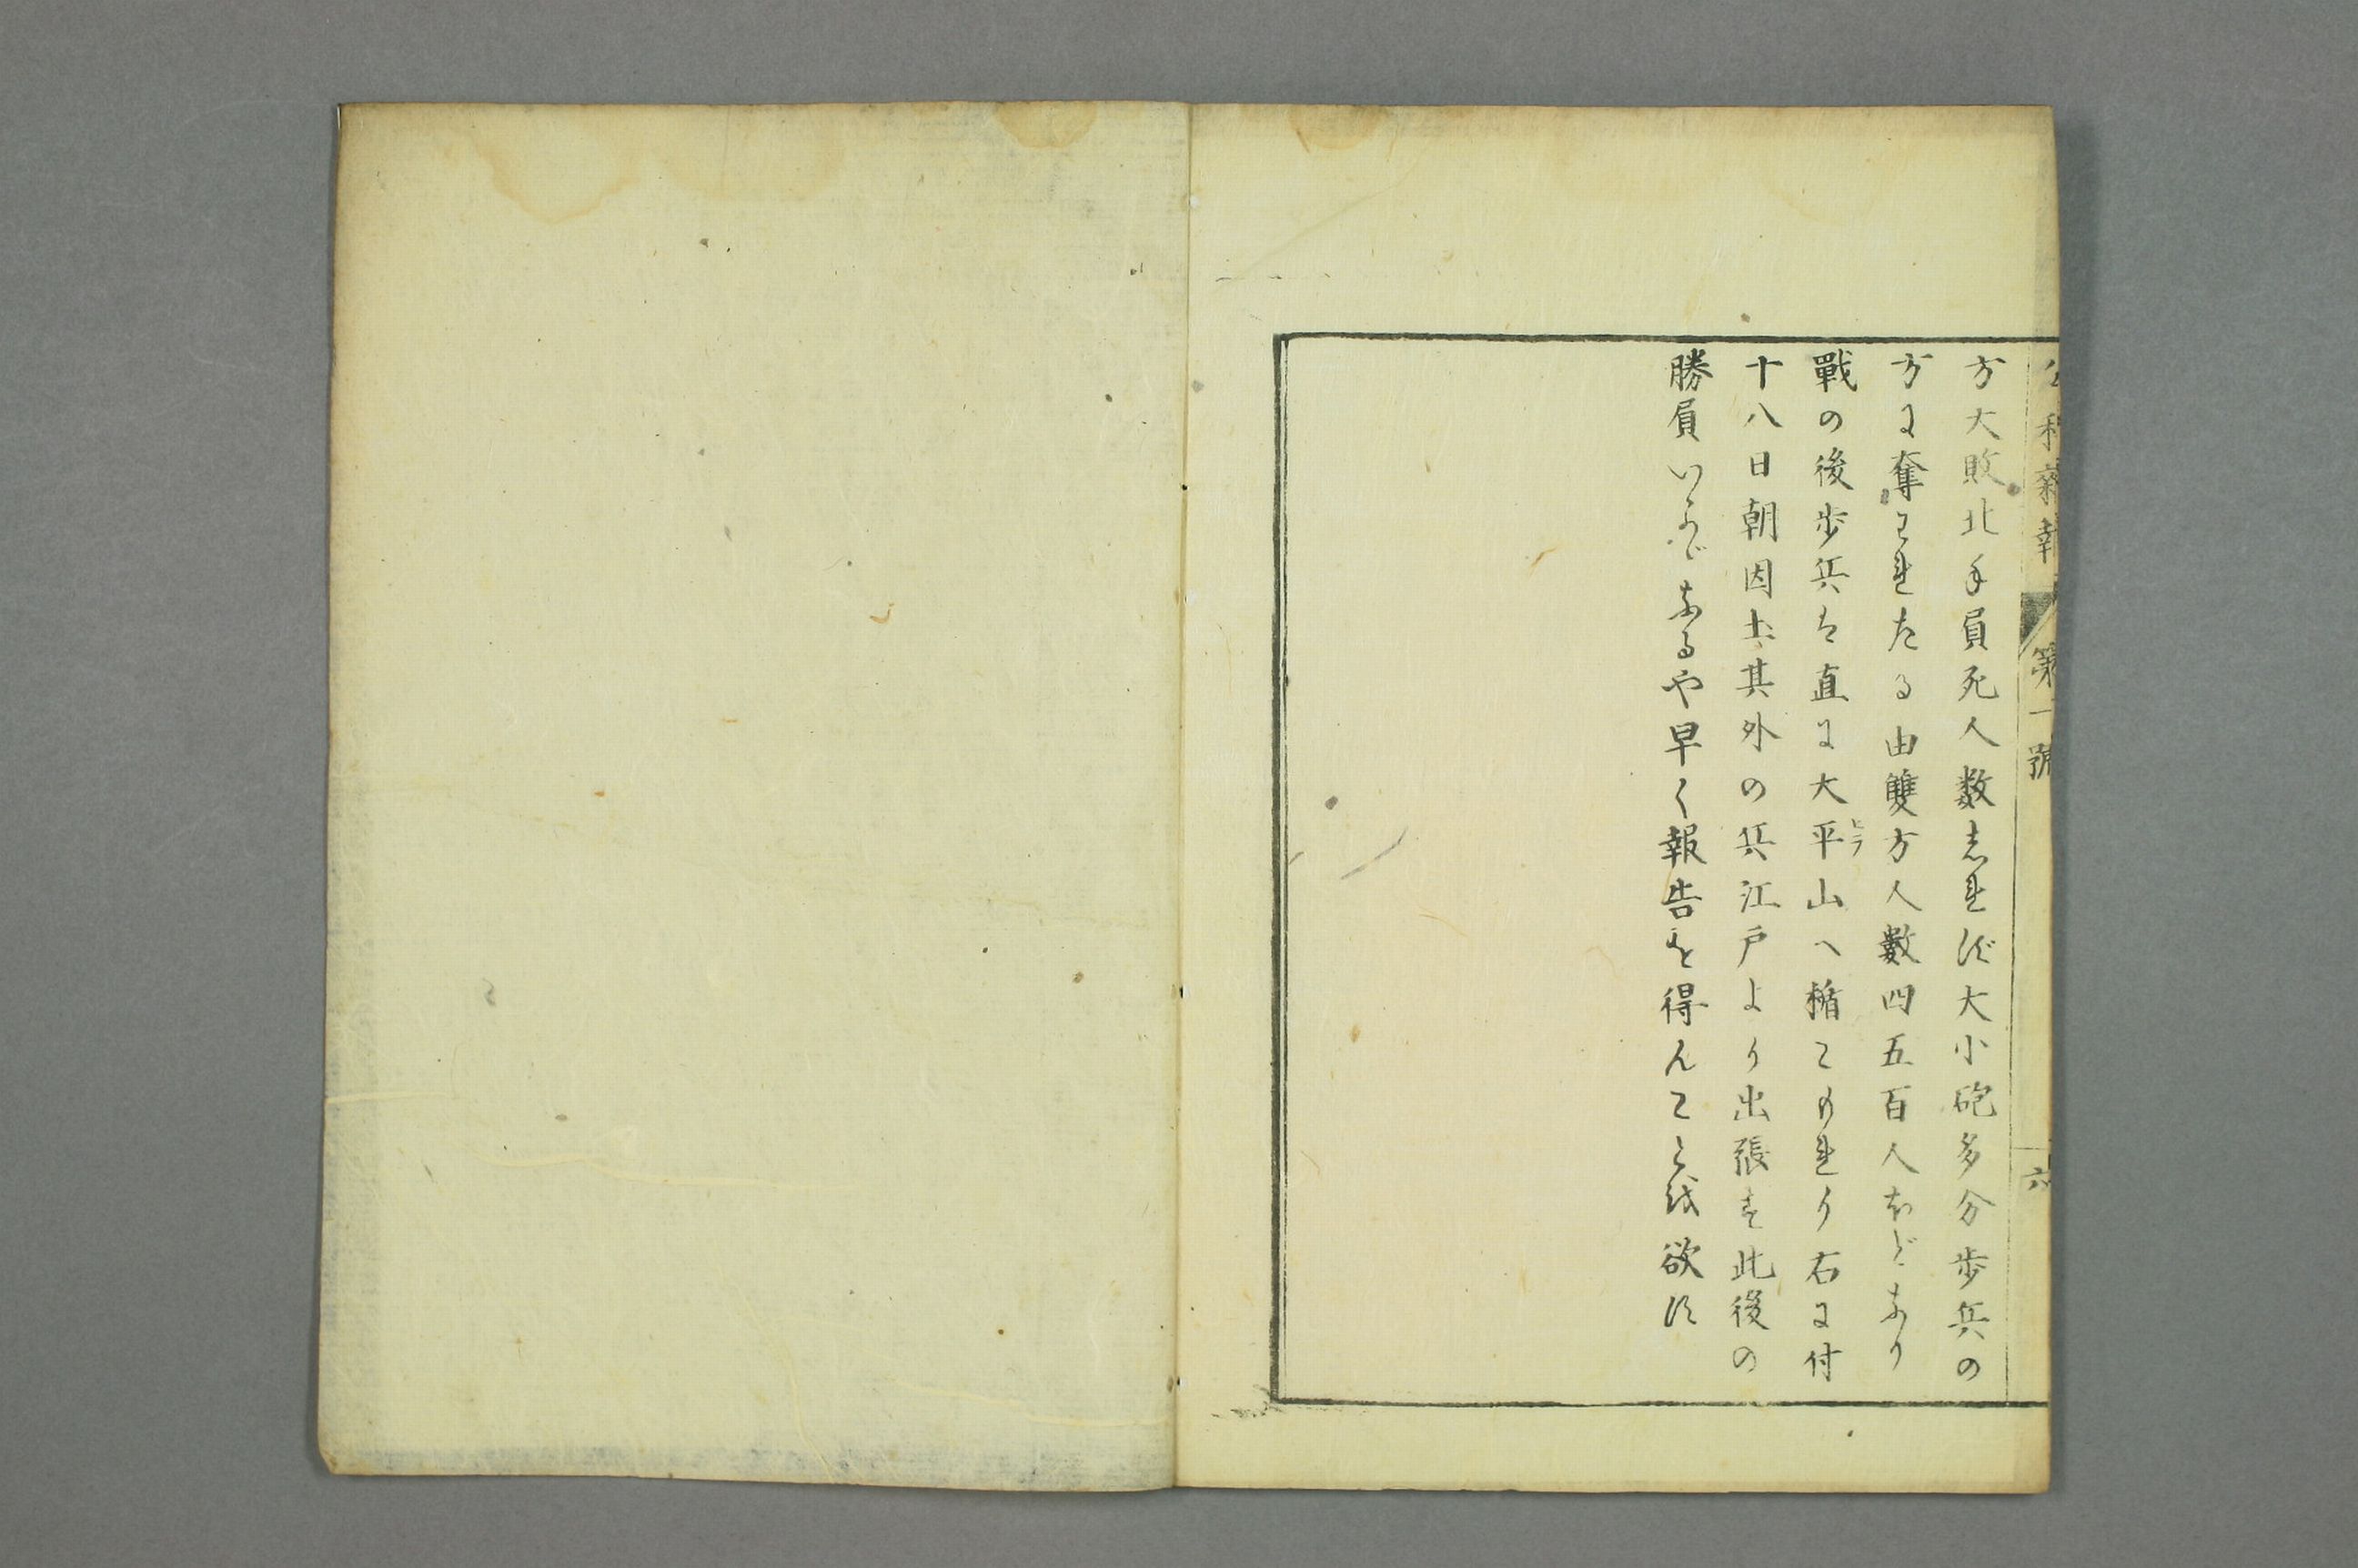 公私雑報 第一號 六
方大敗北手負死人数志れず大小砲多分歩兵の
方に奪われたる由雙方人數四五百人ほどなり
戰の後歩兵は直に大平山へ楯こもれり右に付
ヒラ
十八日朝因土其外の兵江戸より出張す此後の
勝負いかゞなるや早く報告を得んことを欲す